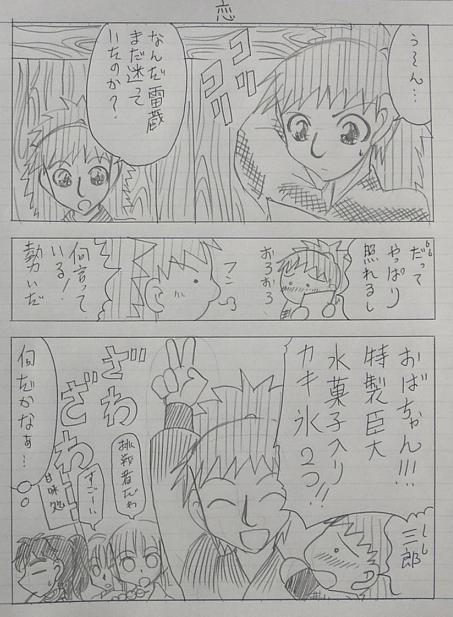 恋
う～ん…
コソコソ
なんだ雷蔵
まだ迷って
いたのか？
だって
やっぱり
照れるし
おろおろ
何言って
いる！
勢いだ
おばちゃん!!!
特製巨大
水菓子入り
カキ氷2つ!!
三郎
ざわ
ざわ
挑戦者だわ
すごーい
甘味処
何だかなぁ…